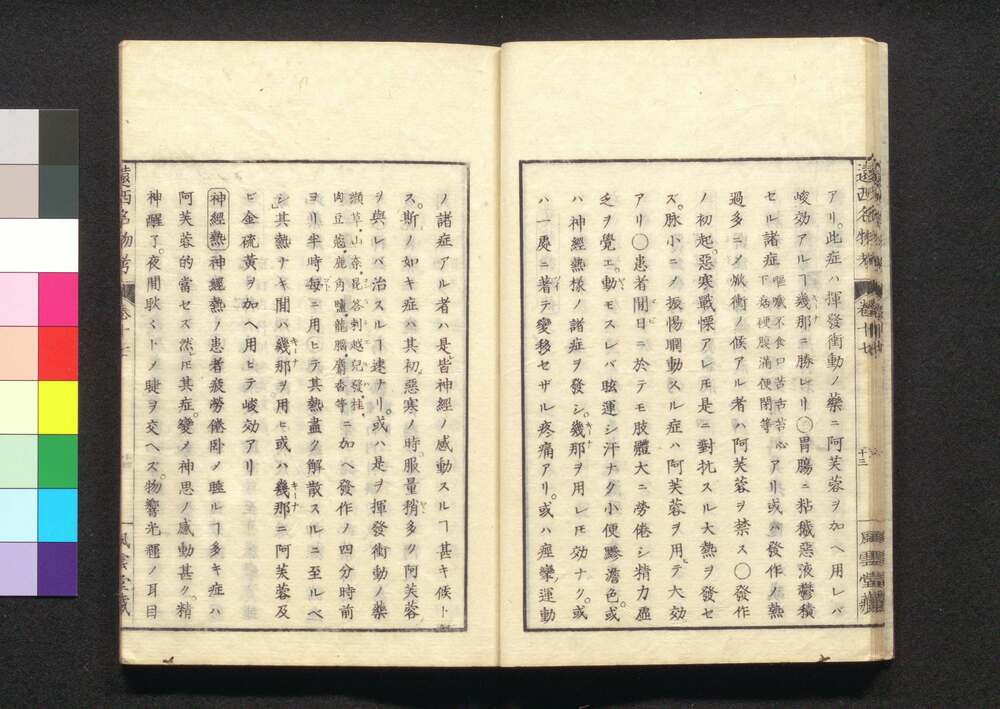 遠西名物考
卷十七
十三
風雲堂藏
アリ。此症ハ揮發衝動ノ藥ニ阿芙蓉ヲ加ヘ用レバ
峻効アルヿ幾那ニ勝レリ〇胃腸ニ粘穢惡液鬱積
セル諸症嘔嘰不食口苦舌苔心下痞硬腹滿便閉等アリ或ハ發作ノ熱
過多ニメ焮衝ノ候アル者ハ阿芙蓉ヲ禁ス〇發作
ノ初起惡寒戰慄アレ𪜈是ニ對抗スル大熱ヲ發セ
ズ。脉小ニメ振惕瞤動スル症ハ阿芙蓉ヲ用テ大効
アリ〇患者間日ニ於テモ肢體大ニ勞倦シ精力虛
乏ヲ覺エ。動モスレバ眩運シ汗ナク小便黲澹色。或
ハ神經熱樣ノ諸症ヲ發シ。幾那ヲ用レ𪜈効ナク。或
ハ一處ニ著テ變移セザル疼痛アリ。或ハ痙攣運動
ノ諸症アル者ハ是皆神經ノ感動スルヿ甚キ候トス
ス。斯ノ如キ症ハ其初惡寒ノ時。服量稍多ク阿芙蓉
ヲ與レバ治スルヿ速ナリ。或ハ是ヲ揮發衝動ノ藥
纈草。山奈。昆答刺越兒發社。肉豆蔲鹿角鹽龍腦。麝香等ニ加ヘ發作ノ四分時前
ヨリ半時每ニ用ヒテ其熱盡ク解散スルニ至ルベ
シ其熱ナキ間ハ幾那ヲ用ヒ或ハ幾那ニ阿芙蓉及
ビ金硫黃ヲ加ヘ用ヒテ峻効アリ
神經熱神經熱ノ患者疲勞倦卧メ睡ルヿ多キ症ハ
阿芙蓉的當セズ然𪜈其症。變メ神思ノ感動甚ク。精
神醒了。夜間耿くトメ睫ヲ交ヘズ。物響光輝ノ耳目
遠西名物考
卷十七
風雲堂藏